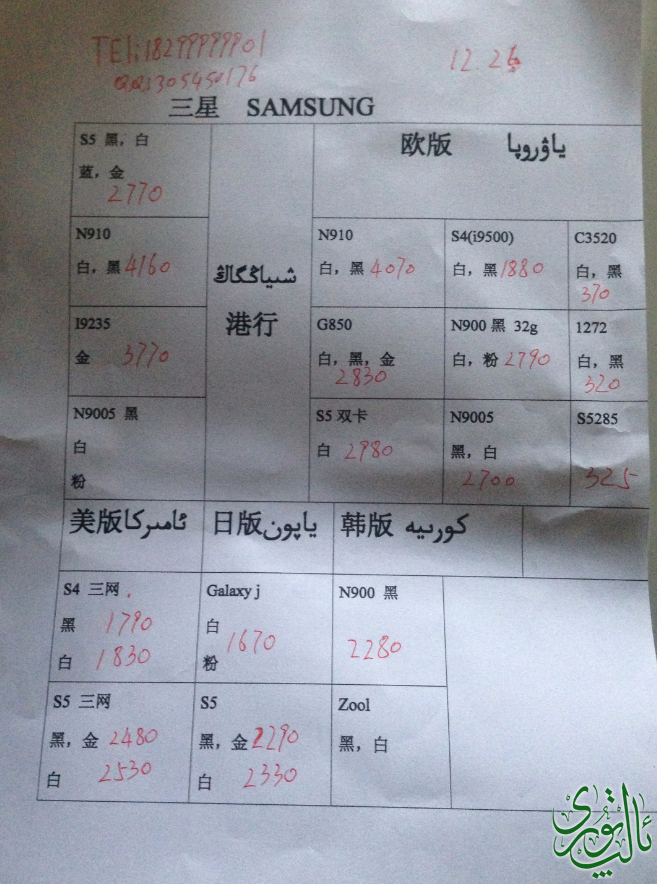 TEL:18299999901
QQ1305450176
12.26
三星 SAMSUNG
S5 黑，白
蓝，金
2770
N910
白，黑 4160
I9235
金 3770
N9005 黑
白
粉
شىياڭگاڭ
港行
欧版 ياۋروپا
N910
白，黑 4070
S4(i9500)
白，黑 1880
C3520
白，黑
370
G850
白，黑，金
2830
N900 黑 32g
白，粉 2790
1272
白，黑
320
S5 双卡
白 2980
N9005
黑，白
2700
S5285
325
美版 ئامىركا
日版 ياپون
韩版 كورىيە
S4 三网
黑 1790
白 1830
Galaxy j
白
1670
粉
N900 黑
2280
S5 三网
黑，金 2480
白 2530
S5
黑，金 2290
白 2330
Zool
黑，白